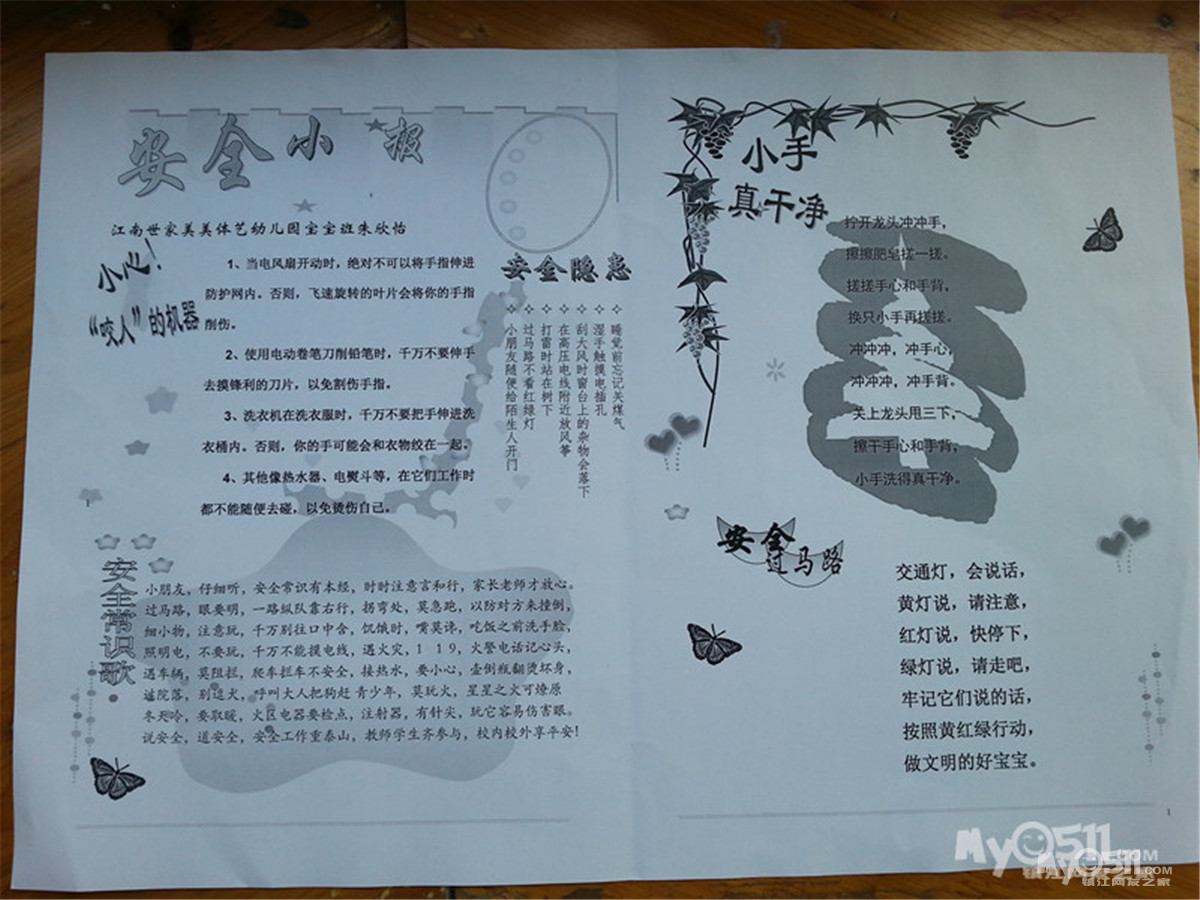 安全小报
江南世家美美体艺幼儿园宝宝班朱欣怡
小心！
“咬人”的机器
1、当电风扇开动时，绝对不可以将手指伸进
防护网内。否则，飞速旋转的叶片会将你的手指
削伤。
2、使用电动卷笔刀削铅笔时，千万不要伸手
去摸锋利的刀片，以免割伤手指。
3、洗衣机在洗衣服时，千万不要把手伸进洗
衣桶内。否则，你的手可能会和衣物绞在一起。
4、其他像热水器、电熨斗等，在它们工作时
都不能随便去碰，以免烫伤自己。
安全隐患
✧睡觉前忘记关煤气
✧湿手触摸电插孔
✧刮大风时窗台上的杂物会落下
✧在高压电线附近放风筝
✧打雷时站在树下
✧过马路不看红绿灯
✧小朋友随便给陌生人开门
1
安全常识歌.
小朋友，仔细听，安全常识有本经，时时注意言和行，家长老师才放心。
过马路，眼要明，一路纵队靠右行，拐弯处，莫急跑，以防对方来撞倒，
细小物，注意玩，千万别往口中含，饥饿时，嘴莫谗，吃饭之前洗手脸，
照明电，不要玩，千万不能摸电线，遇火灾，119，火警电话记心头，
遇车辆，莫阻拦，爬车拦车不安全，接热水，要小心，壶倒瓶翻烫坏身，
进院落，别逗犬，呼叫大人把狗赶 青少年，莫玩火，星星之火可燎原
冬天冷，要取暖，火区电器要检点，注射器，有针尖，玩它容易伤害眼。
说安全，道安全，安全工作重泰山，教师学生齐参与，校内校外享平安！
小手
真干净
拧开龙头冲冲手，
擦擦肥皂搓一搓。
搓搓手心和手背，
换只小手再搓搓。
冲冲冲，冲手心，
冲冲冲，冲手背。
关上龙头甩三下，
擦干手心和手背，
小手洗得真干净。
安全
过马路
交通灯，会说话，
黄灯说，请注意，
红灯说，快停下，
绿灯说，请走吧，
牢记它们说的话，
按照黄红绿行动，
做文明的好宝宝。
1
My0511
.COM
My0511
.COM
镇江网友之家